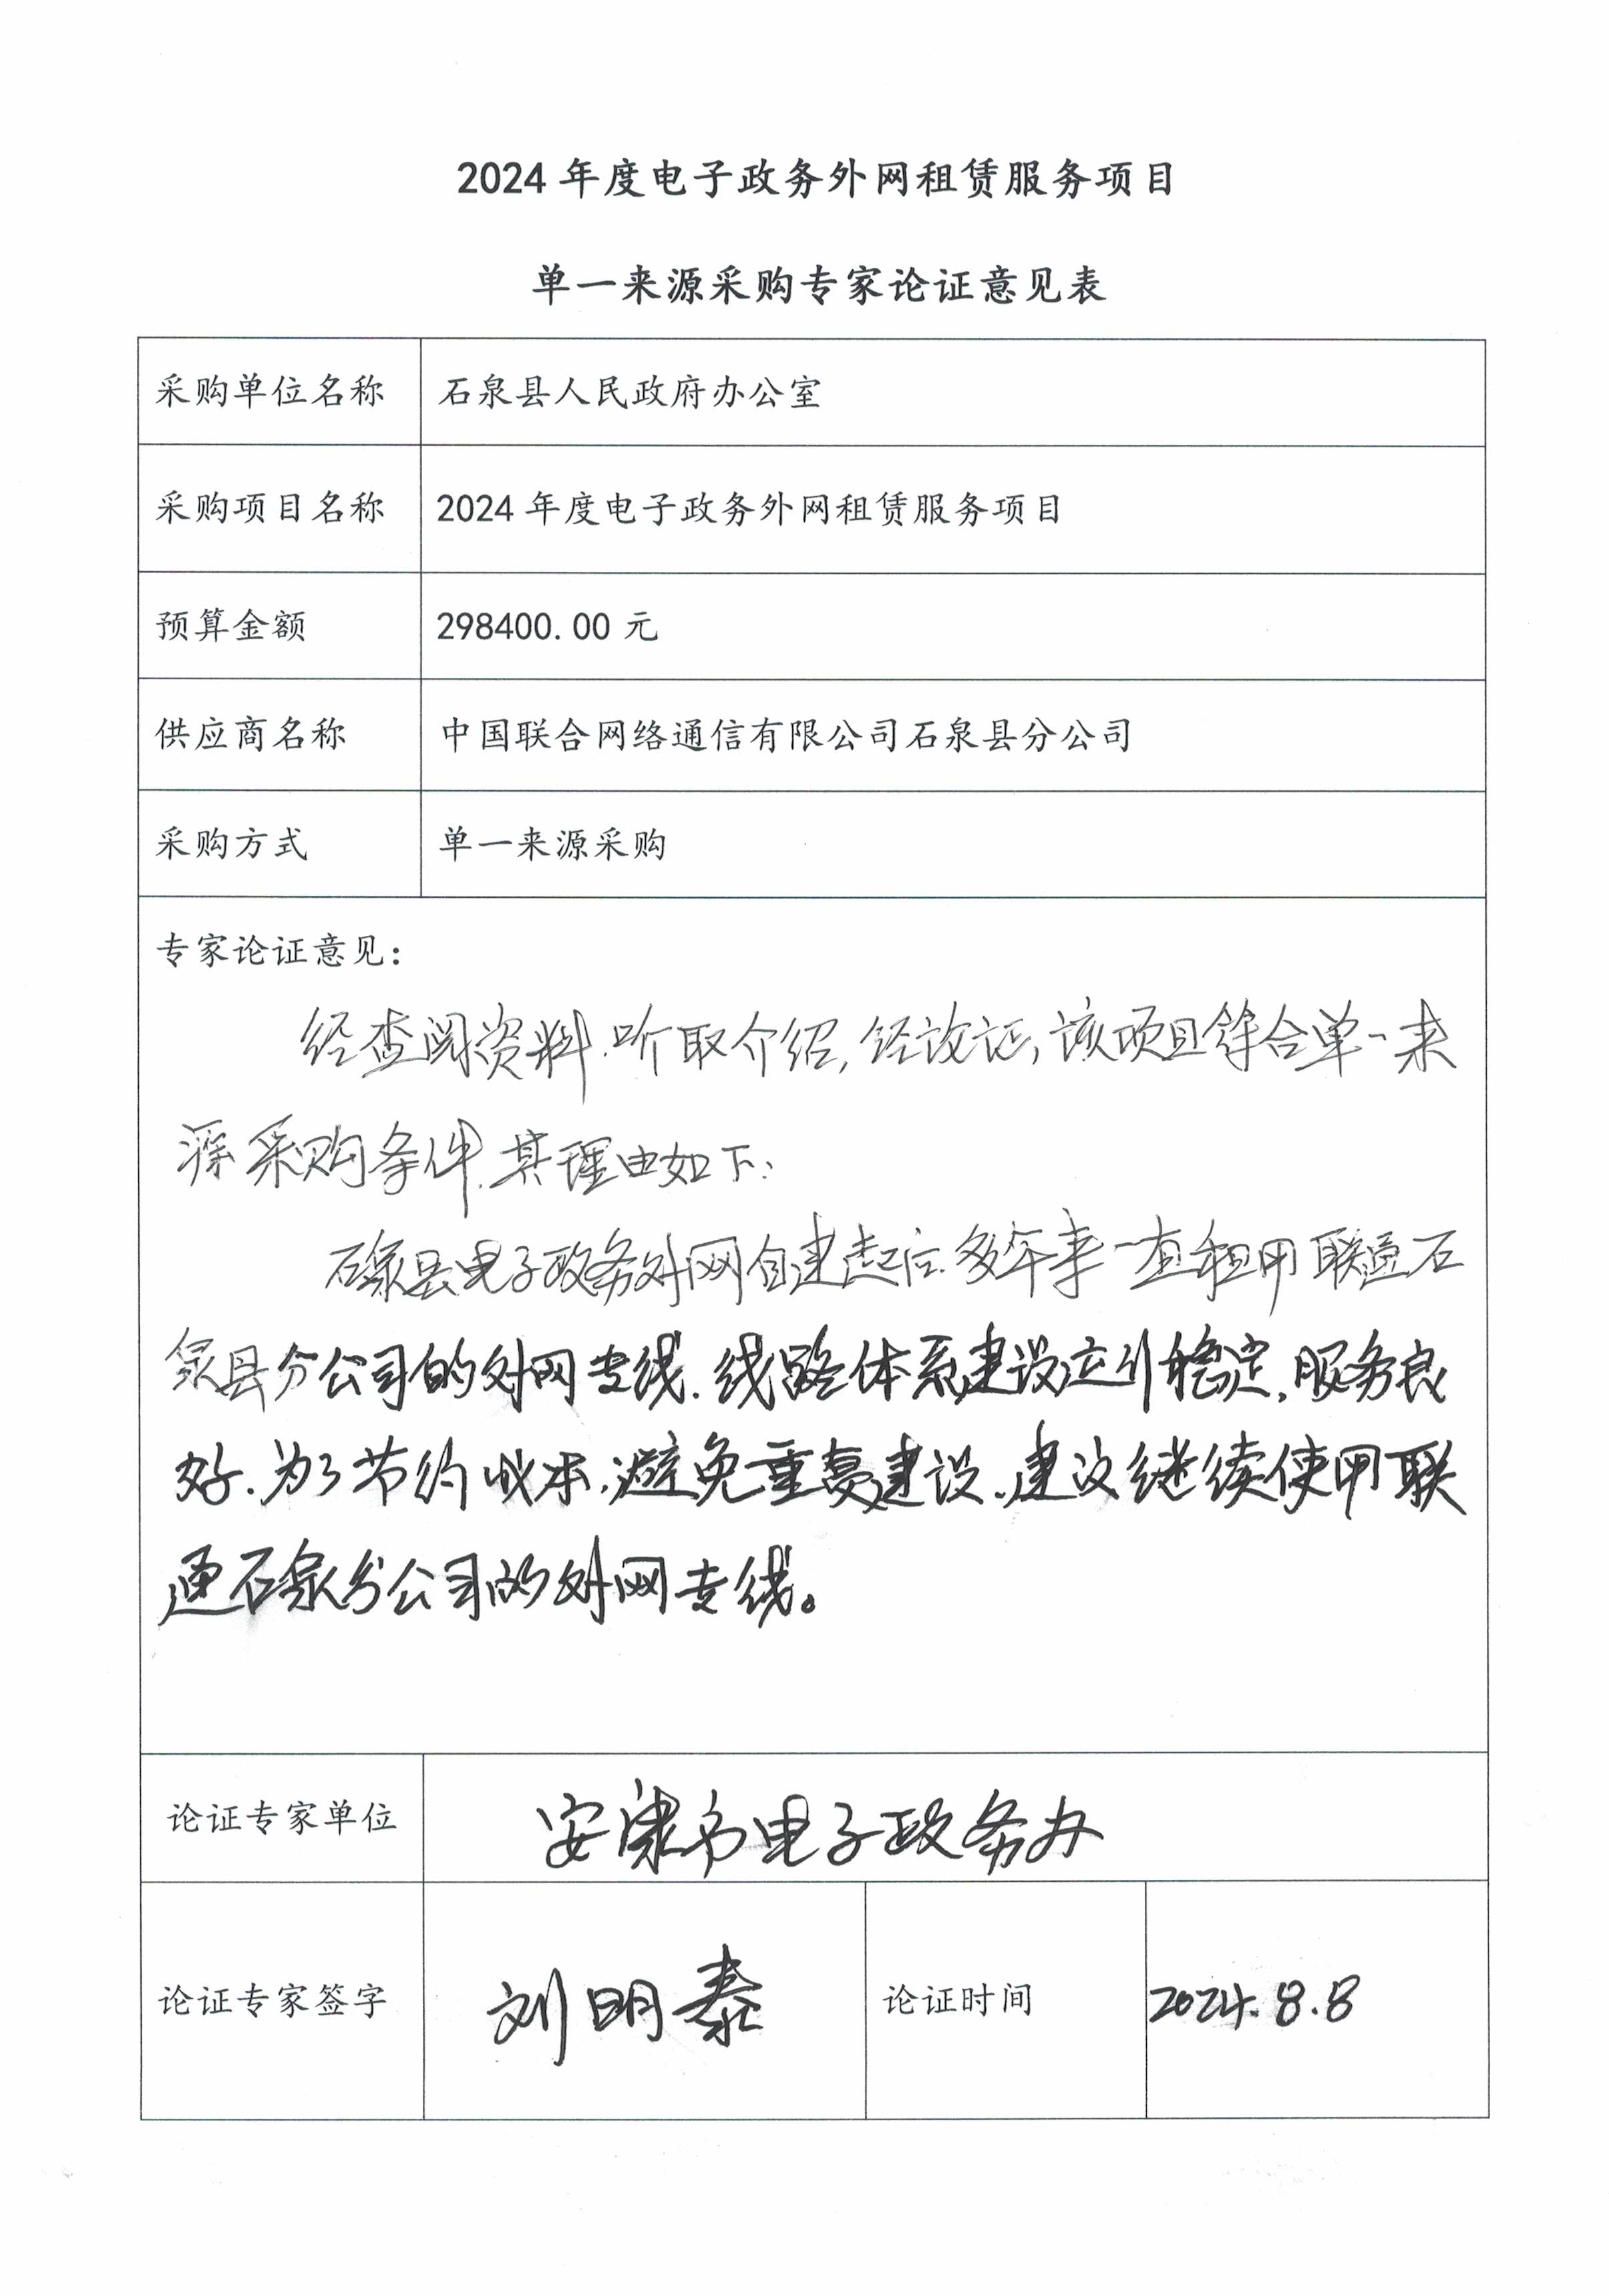 2024 年度电子政务外网租赁服务项目
单一来源采购专家论证意见表
采购单位名称 石泉县人民政府办公室
采购项目名称 2024 年度电子政务外网租赁服务项目
预算金额 298400.00 元
供应商名称 中国联合网络通信有限公司石泉县分公司
采购方式 单一来源采购
专家论证意见：
经查阅资料、听取介绍，经论证，该项目符合单一来
源采购条件，其理由如下：
石泉县电子政务外网自建起后，多年来一直租用联通石
泉县分公司的外网专线，线路体系建设运行稳定，服务良
好。为了节约成本，避免重复建设，建议继续使用联
通石泉分公司的外网专线。
论证专家单位 安康市电子政务办
论证专家签字 刘明泰 论证时间 2024.8.8